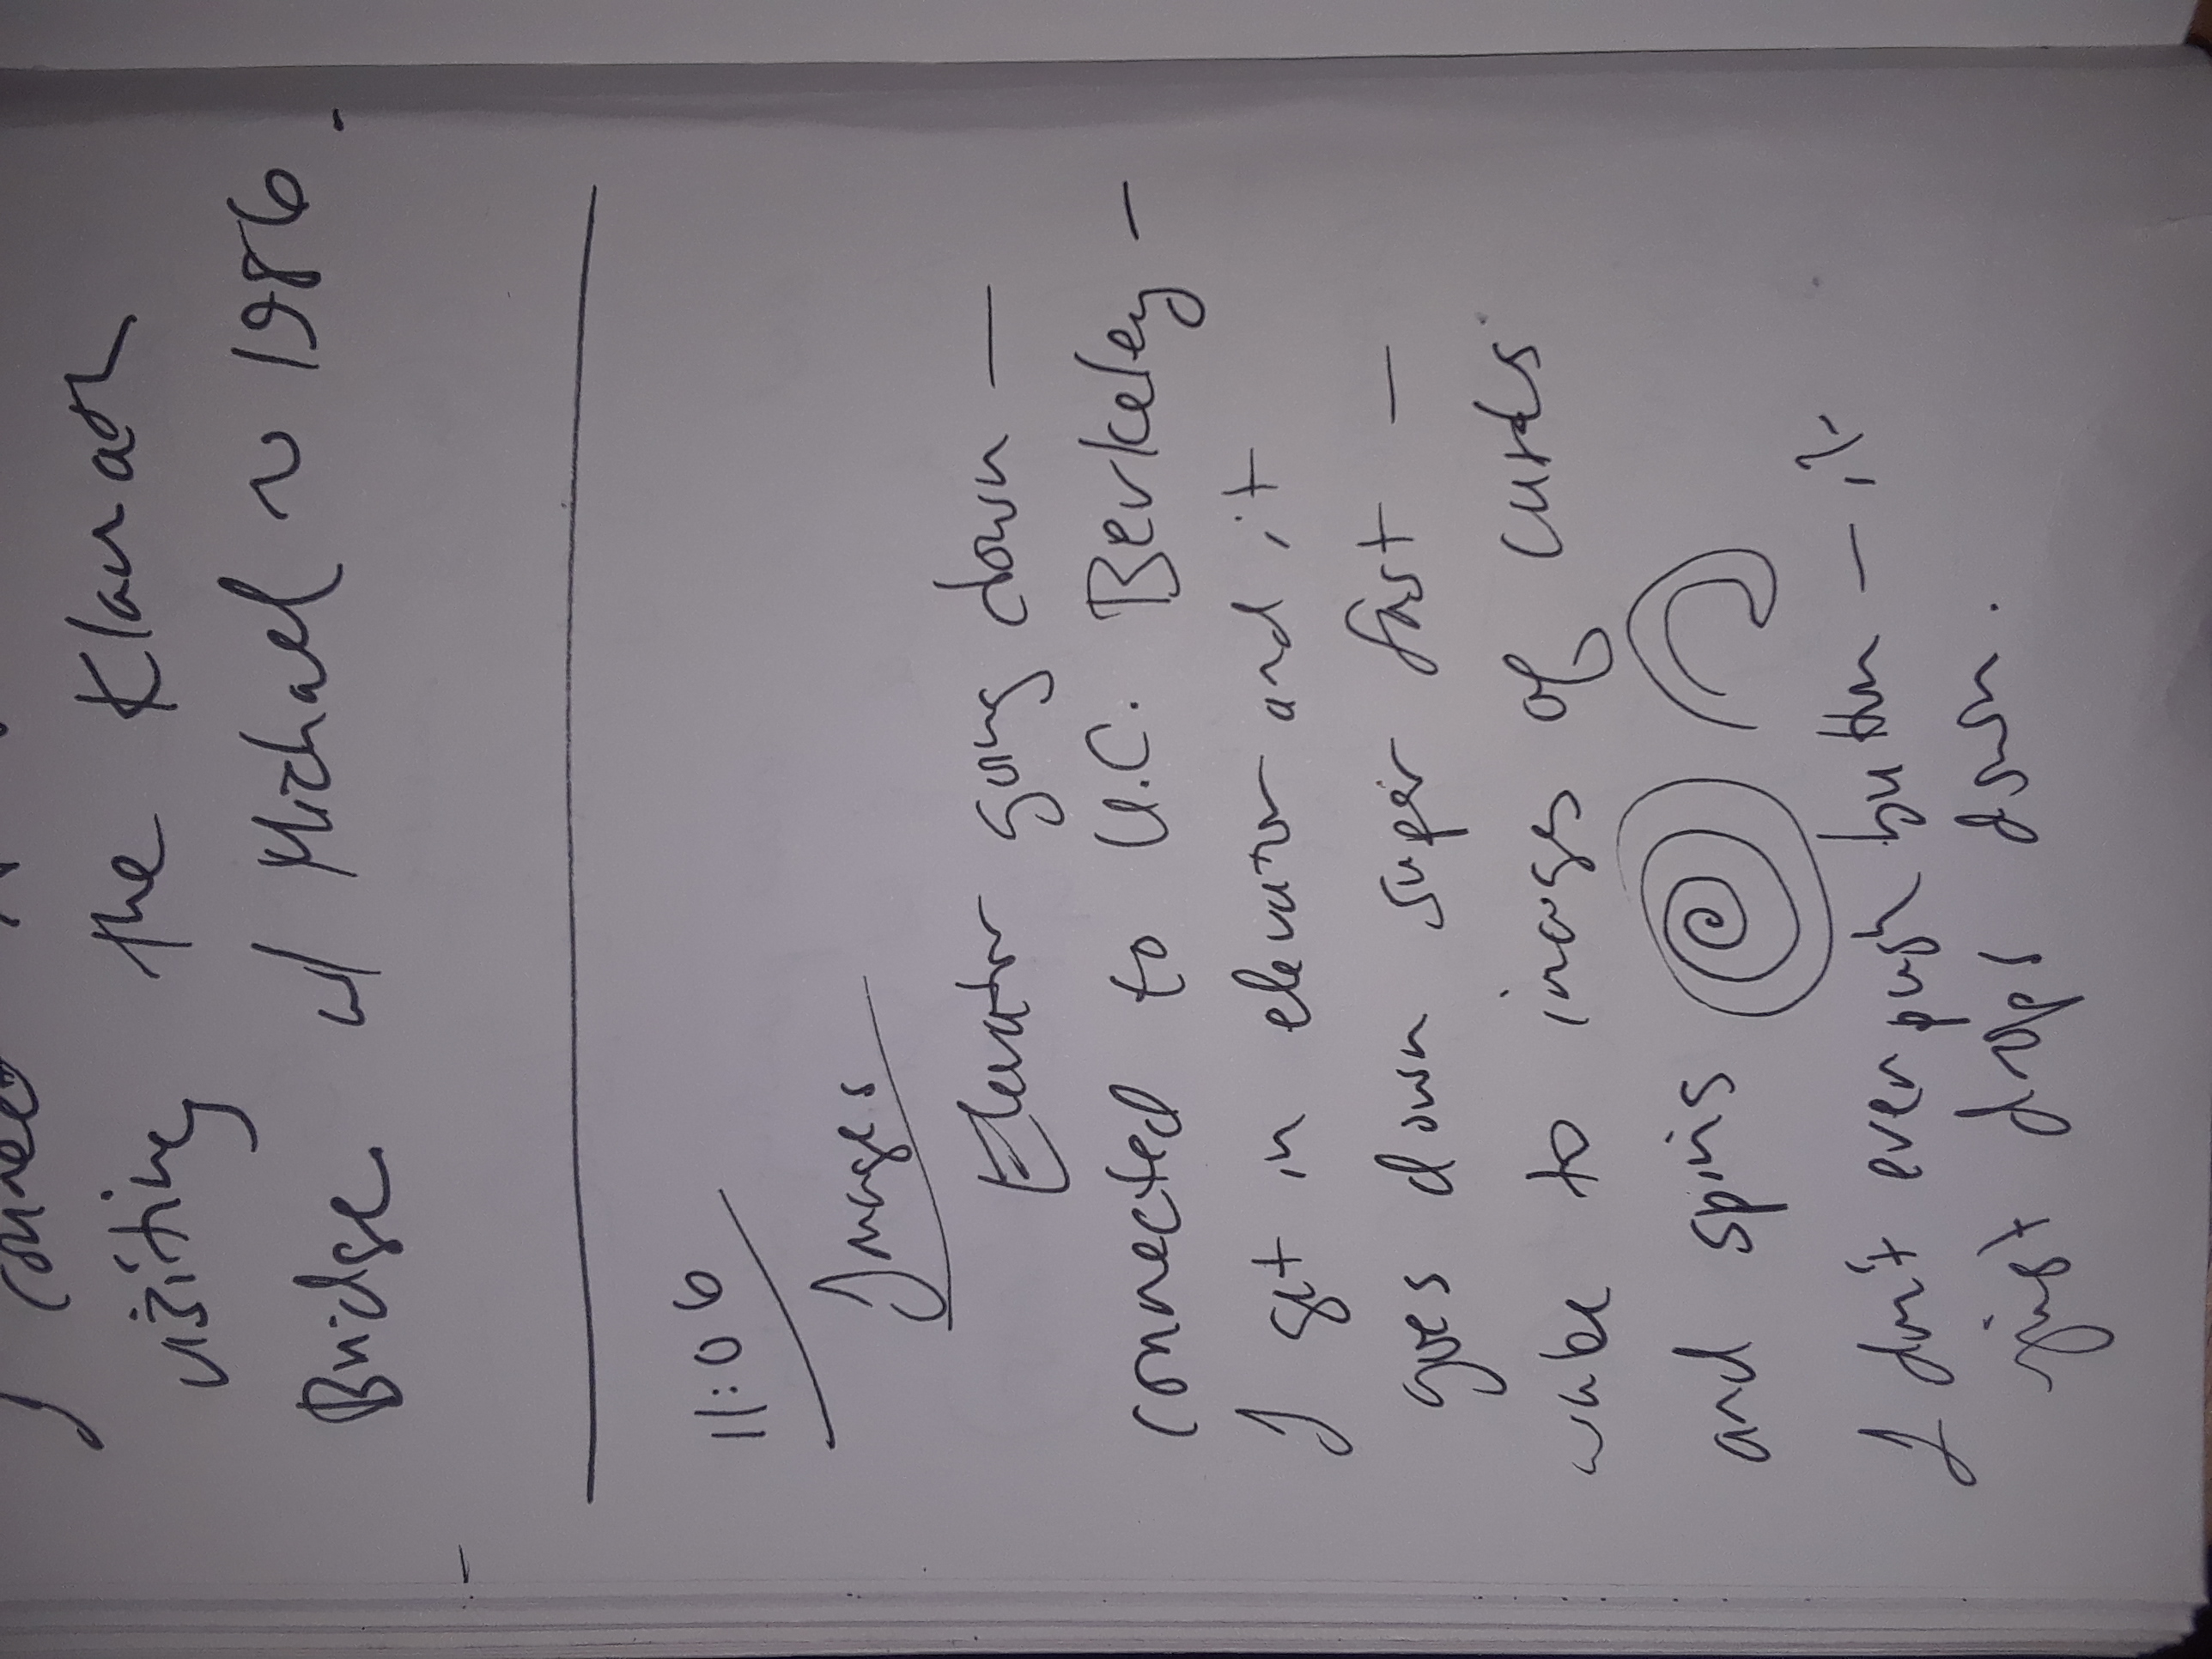 visiting the Klamath
Bridge w/ Michael ~ 1986.
11:06
Images
Elevator going down —
connected to U.C. Berkeley —
I get in elevator and it
goes down super fast —
wake to images of curds
and spins
I don't even push button — it
just drops down.